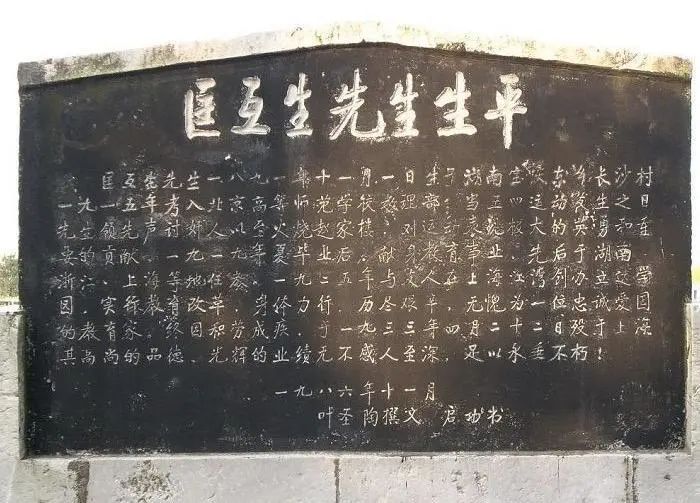 匡互生先生生平
匡互生先生一八九一年十一月一日生于湖南宝庆东乡长沙村
一九一五年考入北京高等师范学校数理部、当五四运动发生之日
先生领先声讨奸人以至火烧赵家楼、对运动 大的英勇和重
要贡献。一九一九年夏毕业后、献身教育事业,先后于湖南
浙江、上海等地任教。一九二五年与 人在上海江湾创办立达学
园、实行教育改革、身体力行、历尽艰辛、无愧为一位忠诚爱国
的教育家。终因积劳成疾,于一九三三年四月二十二日殁于上海
其 尚的品德、光辉的业绩、 感人至深。足以永垂不朽!
一九八六年十一月
叶圣陶撰文 启功书